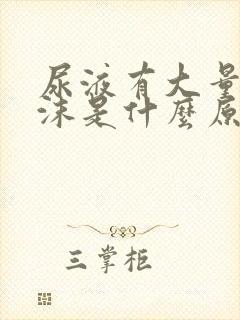 尿液有大量
沫是什麼原
三掌柜